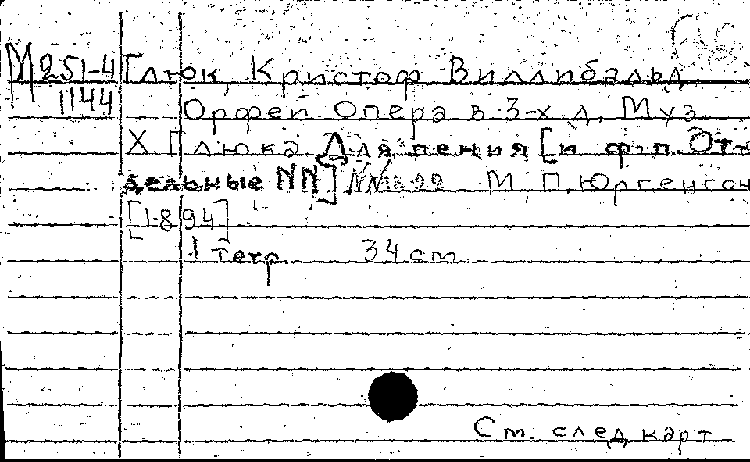 М251-4 Глюк, Кристоф Виллибальд
1144 Орфей Опера в 3-х д. Муз
Х Глюка. Для пения [и ф-п. От-
дельные NN] NN 22 М П. Юргенсон
[1894]
1 тетр. 34 cm
См. след карт